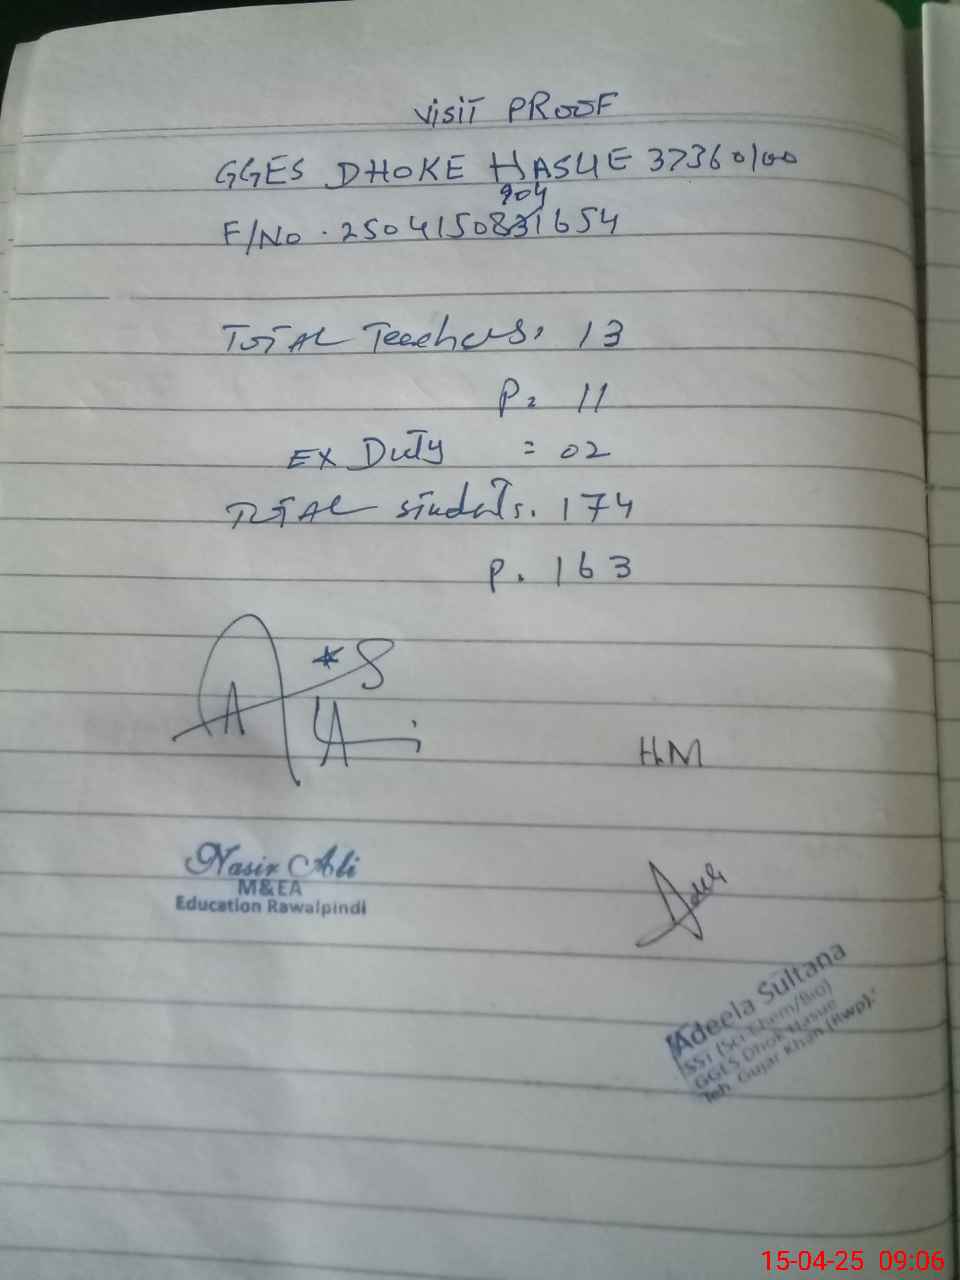 VISIT PROOF
GGES DHOKE HASUE 37360100
904
F/No. 2504150831654
TOTAL Teachers. 13
P= 11
EX Duty = 02
TOTAL students. 174
P. 163
HM
Nasir Ali
M&EA
Education Rawalpindi
Adeela Sultana
SST (Sci Chem/Bio)
GGES Dhok Hasue
Teh. Gujar Khan (Rwp).
15-04-25 09:06